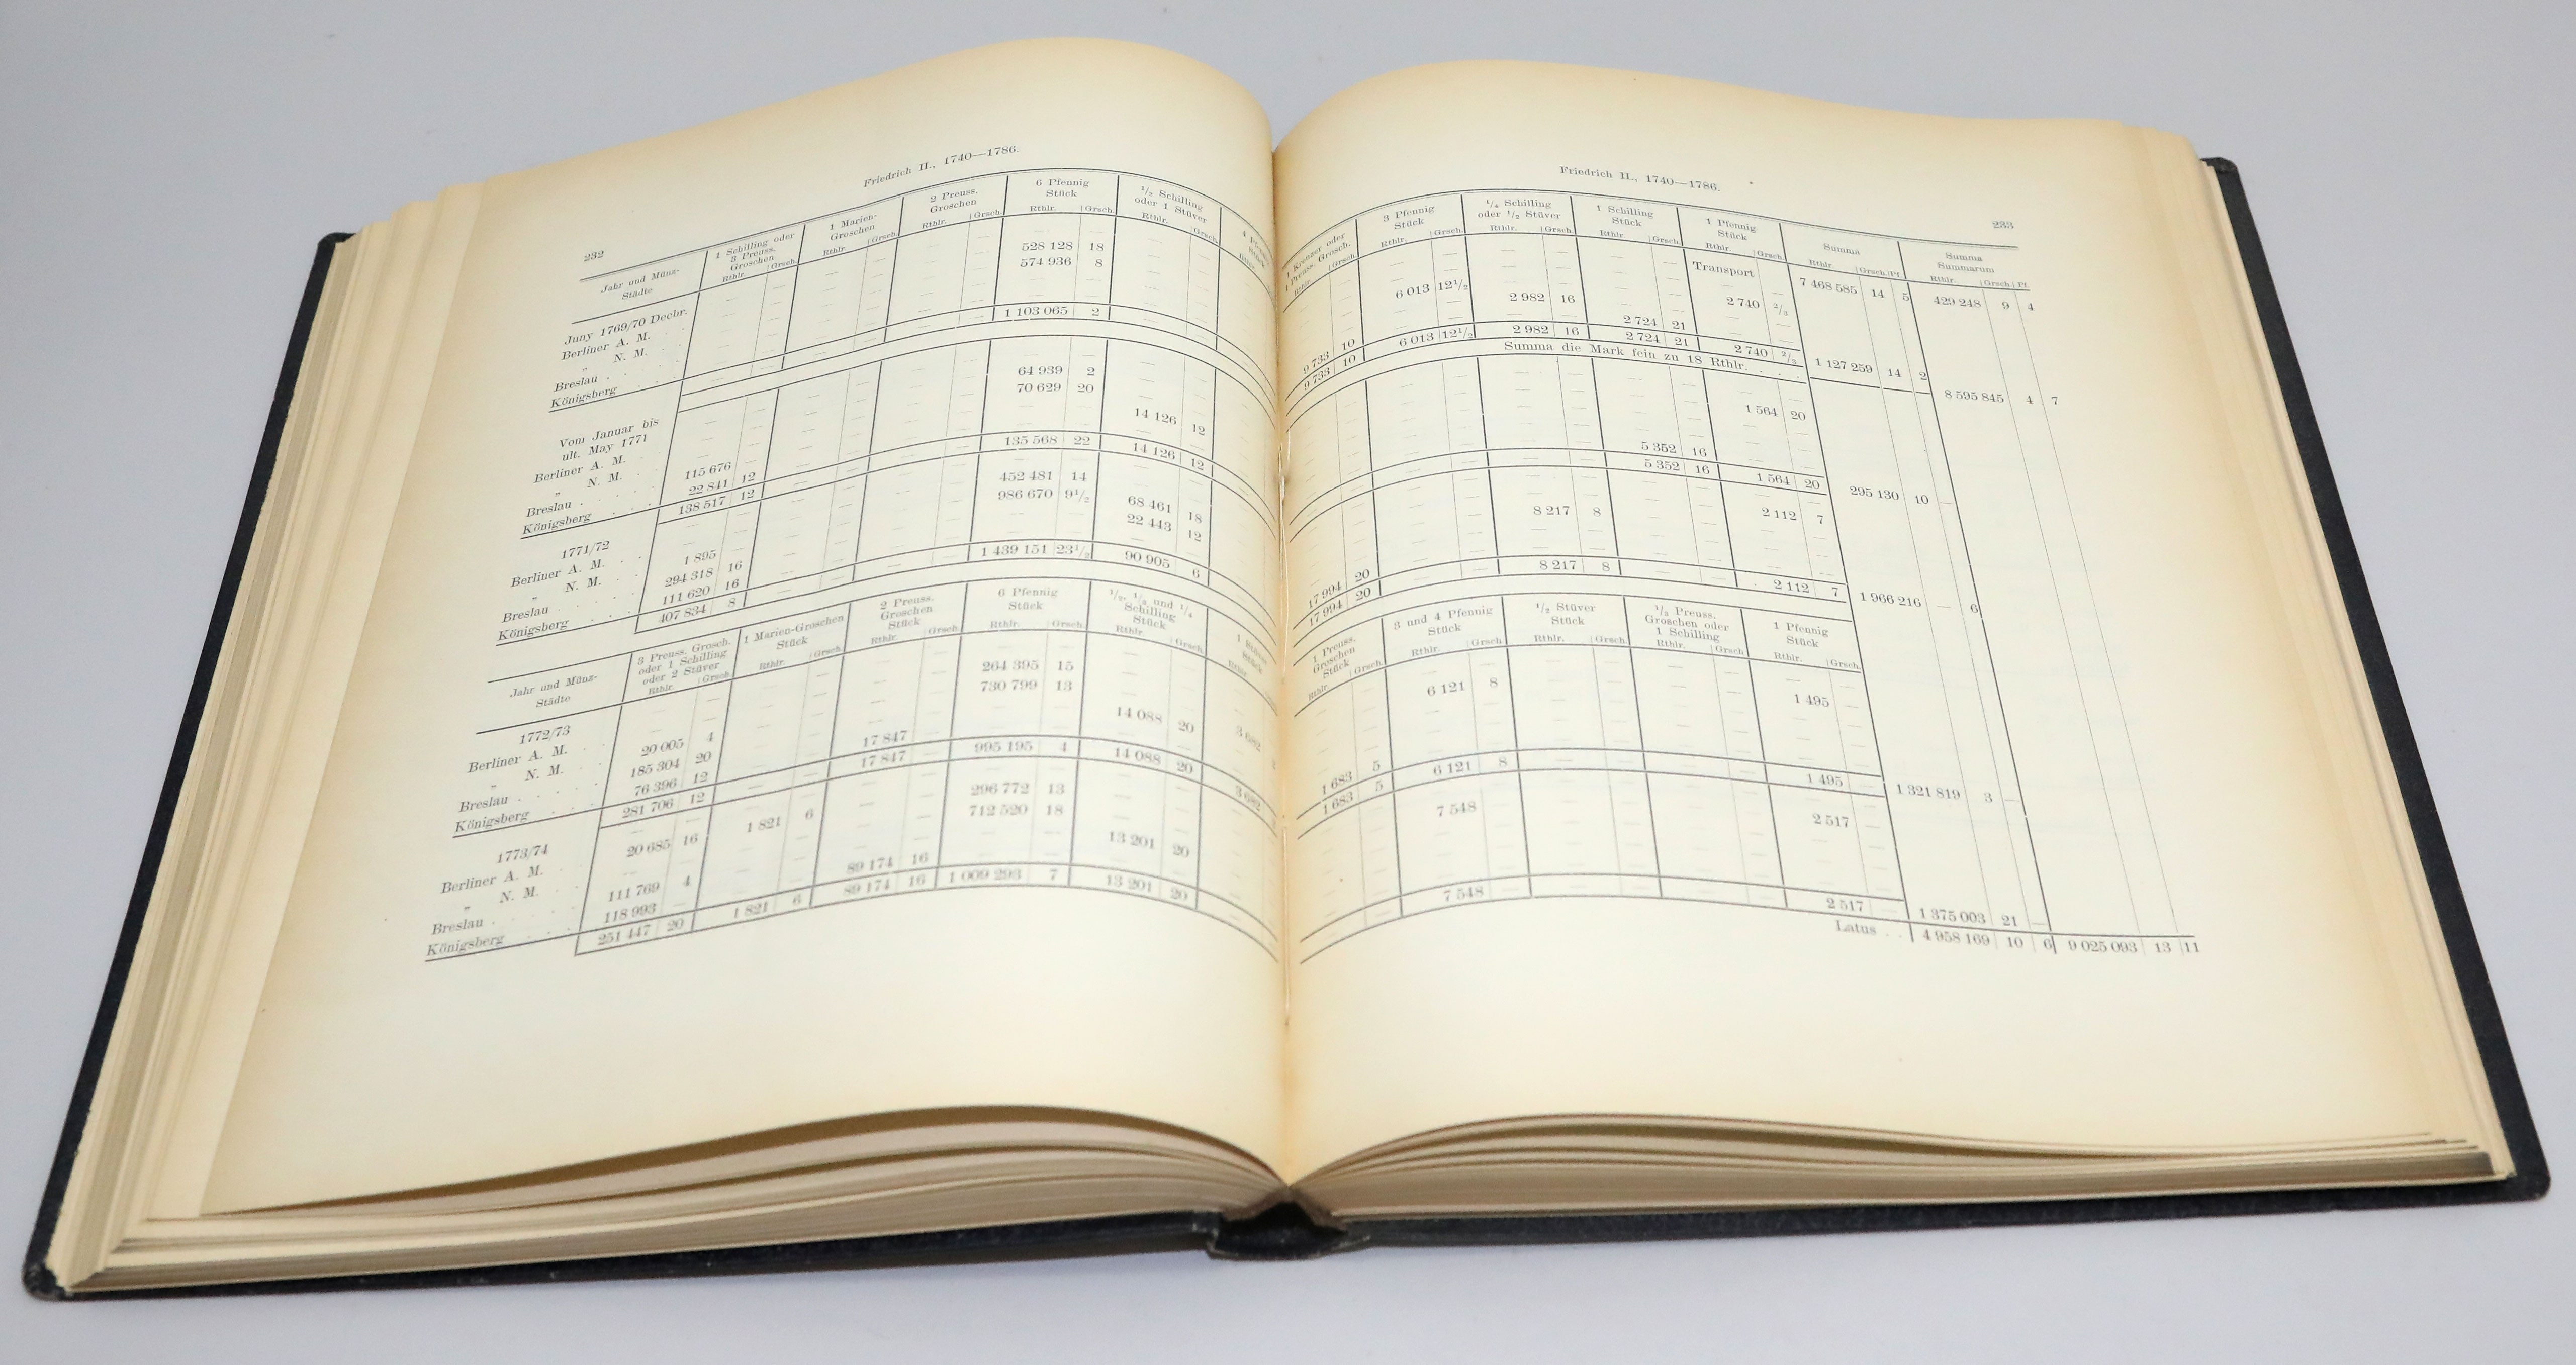 Friedrich II., 1740—1786.
232
Jahr und Münz-
Städte
1 Schilling oder
3 Preuss.
Groschen
Rthlr. Grsch.
1 Marien-
Groschen
Rthlr Grsch.
2 Preuss.
Groschen
Rthlr. Grsch.
6 Pfennig
Stück
Rthlr. Grsch.
1/2 Schilling
oder 1 Stüver
Rthlr. Grsch.
Juny 1769/70 Decbr.
Berliner A. M. 528 128 18
„ N. M. 574 936 8
Breslau
Königsberg
1 103 065 2
Vom Januar bis
ult. May 1771
Berliner A. M. 64 939 2
„ N. M. 70 629 20
Breslau 115 676 — 14 126 12
Königsberg 22 841 12
138 517 12 135 568 22 14 126 12
1771/72
Berliner A. M. 452 481 14
„ N. M. 1 895 — 986 670 9 1/2
Breslau 294 318 16 68 461 18
Königsberg 111 620 16 22 443 12
407 834 8 1 439 151 23 1/2 90 905 6
Jahr und Münz-
Städte
3 Preuss. Grosch.
oder 1 Schilling
oder 2 Stüver
Rthlr. Grsch.
1 Marien-Groschen
Stück
Rthlr. Grsch.
2 Preuss.
Groschen
Stück
Rthlr. Grsch.
6 Pfennig
Stück
Rthlr. Grsch.
1/2, 1/3 und 1/4
Schilling
Stück
Rthlr. Grsch.
1772/73
Berliner A. M. 264 395 15
„ N. M. 20 005 4 730 799 13
Breslau 185 304 20 14 088 20
Königsberg 76 396 12 17 847 — 3 682
281 706 12 17 847 — 995 195 4 14 088 20 3 682
1773/74
Berliner A. M. 1 821 6 296 772 13
„ N. M. 20 685 16 712 520 18
Breslau 111 769 4 13 201 20
Königsberg 118 993 — 89 174 16
251 447 20 1 821 6 89 174 16 1 009 293 7 13 201 20
Friedrich II., 1740—1786.
233
1 Kreuzer oder
1 Preuss. Grosch.
Rthlr. Grsch.
3 Pfennig
Stück
Rthlr. Grsch.
1/4 Schilling
oder 1/2 Stüver
Rthlr. Grsch.
1 Schilling
Stück
Rthlr. Grsch.
1 Pfennig
Stück
Rthlr. Grsch.
Summa
Rthlr. Grsch. Pf.
Summa
Summarum
Rthlr. Grsch. Pf.
Transport 7 468 585 14 5 429 248 9 4
6 013 12 1/2 2 740 2/3
2 982 16
9 733 10 2 724 21
9 733 10 6 013 12 1/2 2 982 16 2 724 21 2 740 2/3 1 127 259 14 2
Summa die Mark fein zu 18 Rthlr. . . . 8 595 845 4 7
1 564 20
5 352 16
5 352 16 1 564 20 295 130 10 —
8 217 8 2 112 7
17 994 20
17 994 20 8 217 8 2 112 7 1 966 216 — 6
1 Preuss.
Groschen
Stück
Rthlr. Grsch.
3 und 4 Pfennig
Stück
Rthlr. Grsch.
1/2 Stüver
Stück
Rthlr. Grsch.
1/3 Preuss.
Groschen oder
1 Schilling
Rthlr. Grsch.
1 Pfennig
Stück
Rthlr. Grsch.
6 121 8 1 495 —
1 683 5
1 683 5 6 121 8 1 495 — 1 321 819 3 —
7 548 — 2 517 —
7 548 — 2 517 — 1 375 003 21 —
Latus . . 4 958 169 10 6 9 025 093 13 11